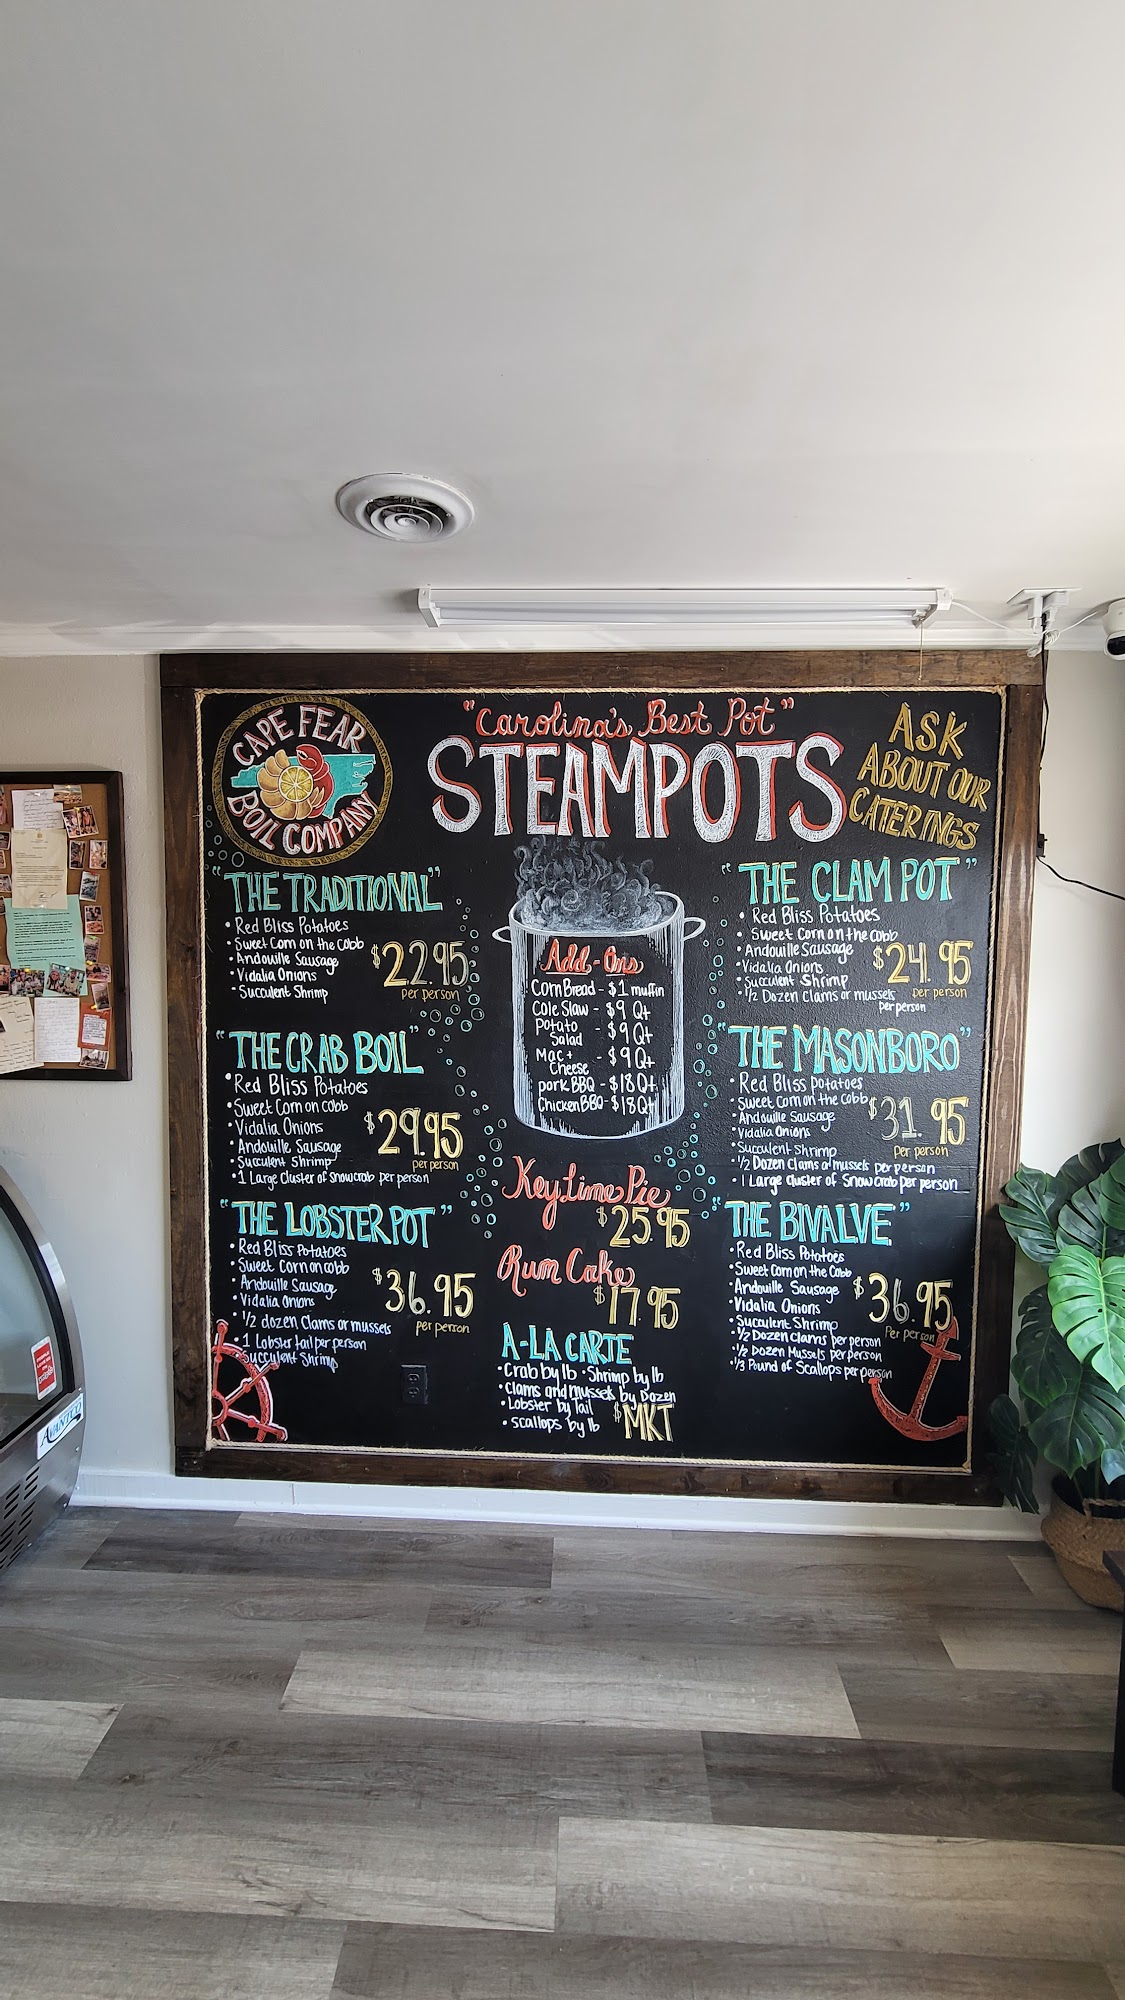 CAPE FEAR
BOIL COMPANY
"Carolina's Best Pot"
STEAMPOTS
ASK
ABOUT OUR
CATERINGS
"THE TRADITIONAL"
• Red Bliss Potatoes
• Sweet Corn on the cobb
• Andouille Sausage
• Vidalia Onions
• Succulent Shrimp
$22.95
per person
"THE CRAB BOIL"
• Red Bliss Potatoes
• Sweet Corn on cobb
• Vidalia Onions
• Andouille Sausage
• Succulent Shrimp
• 1 Large Cluster of snowcrab per person
$29.95
per person
"THE LOBSTER POT"
• Red Bliss Potatoes
• Sweet Corn on cobb
• Andouille Sausage
• Vidalia Onions
• 1/2 dozen clams or mussels
• 1 Lobster tail per person
Succulent Shrimp
$36.95
per person
Add-Ons
Corn Bread - $1 muffin
Cole Slaw - $9 Qt
Potato
Salad - $9 Qt
Mac +
Cheese - $9 Qt
pork BBQ - $18 Qt
Chicken BBQ - $18 Qt
Key Lime Pie
$25.95
Rum Cake
$17.95
A-LA CARTE
• Crab by lb • Shrimp by lb
• Clams and mussels by Dozen
• Lobster by Tail
• scallops by lb
$MKT
"THE CLAM POT"
• Red Bliss Potatoes
• Sweet Corn on the cobb
Andouille Sausage
• Vidalia Onions
• Succulent Shrimp
• 1/2 Dozen Clams or mussels
per person
$24.95
per person
"THE MASONBORO"
• Red Bliss potatoes
• Sweet Corn on the cobb
• Andouille Sausage
• Vidalia Onions
• Succulent Shrimp
• 1/2 Dozen Clams or mussels per person
• 1 Large Cluster of Snow Crab per person
$31.95
per person
"THE BIVALVE"
• Red Bliss Potatoes
• Sweet Corn on the Cobb
• Andouille Sausage
• Vidalia Onions
• Succulent Shrimp
• 1/2 Dozen Clams per person
• 1/2 Dozen Mussels per person
• 1/3 Pound of Scallops per person
$36.95
Per person
AVANTCO